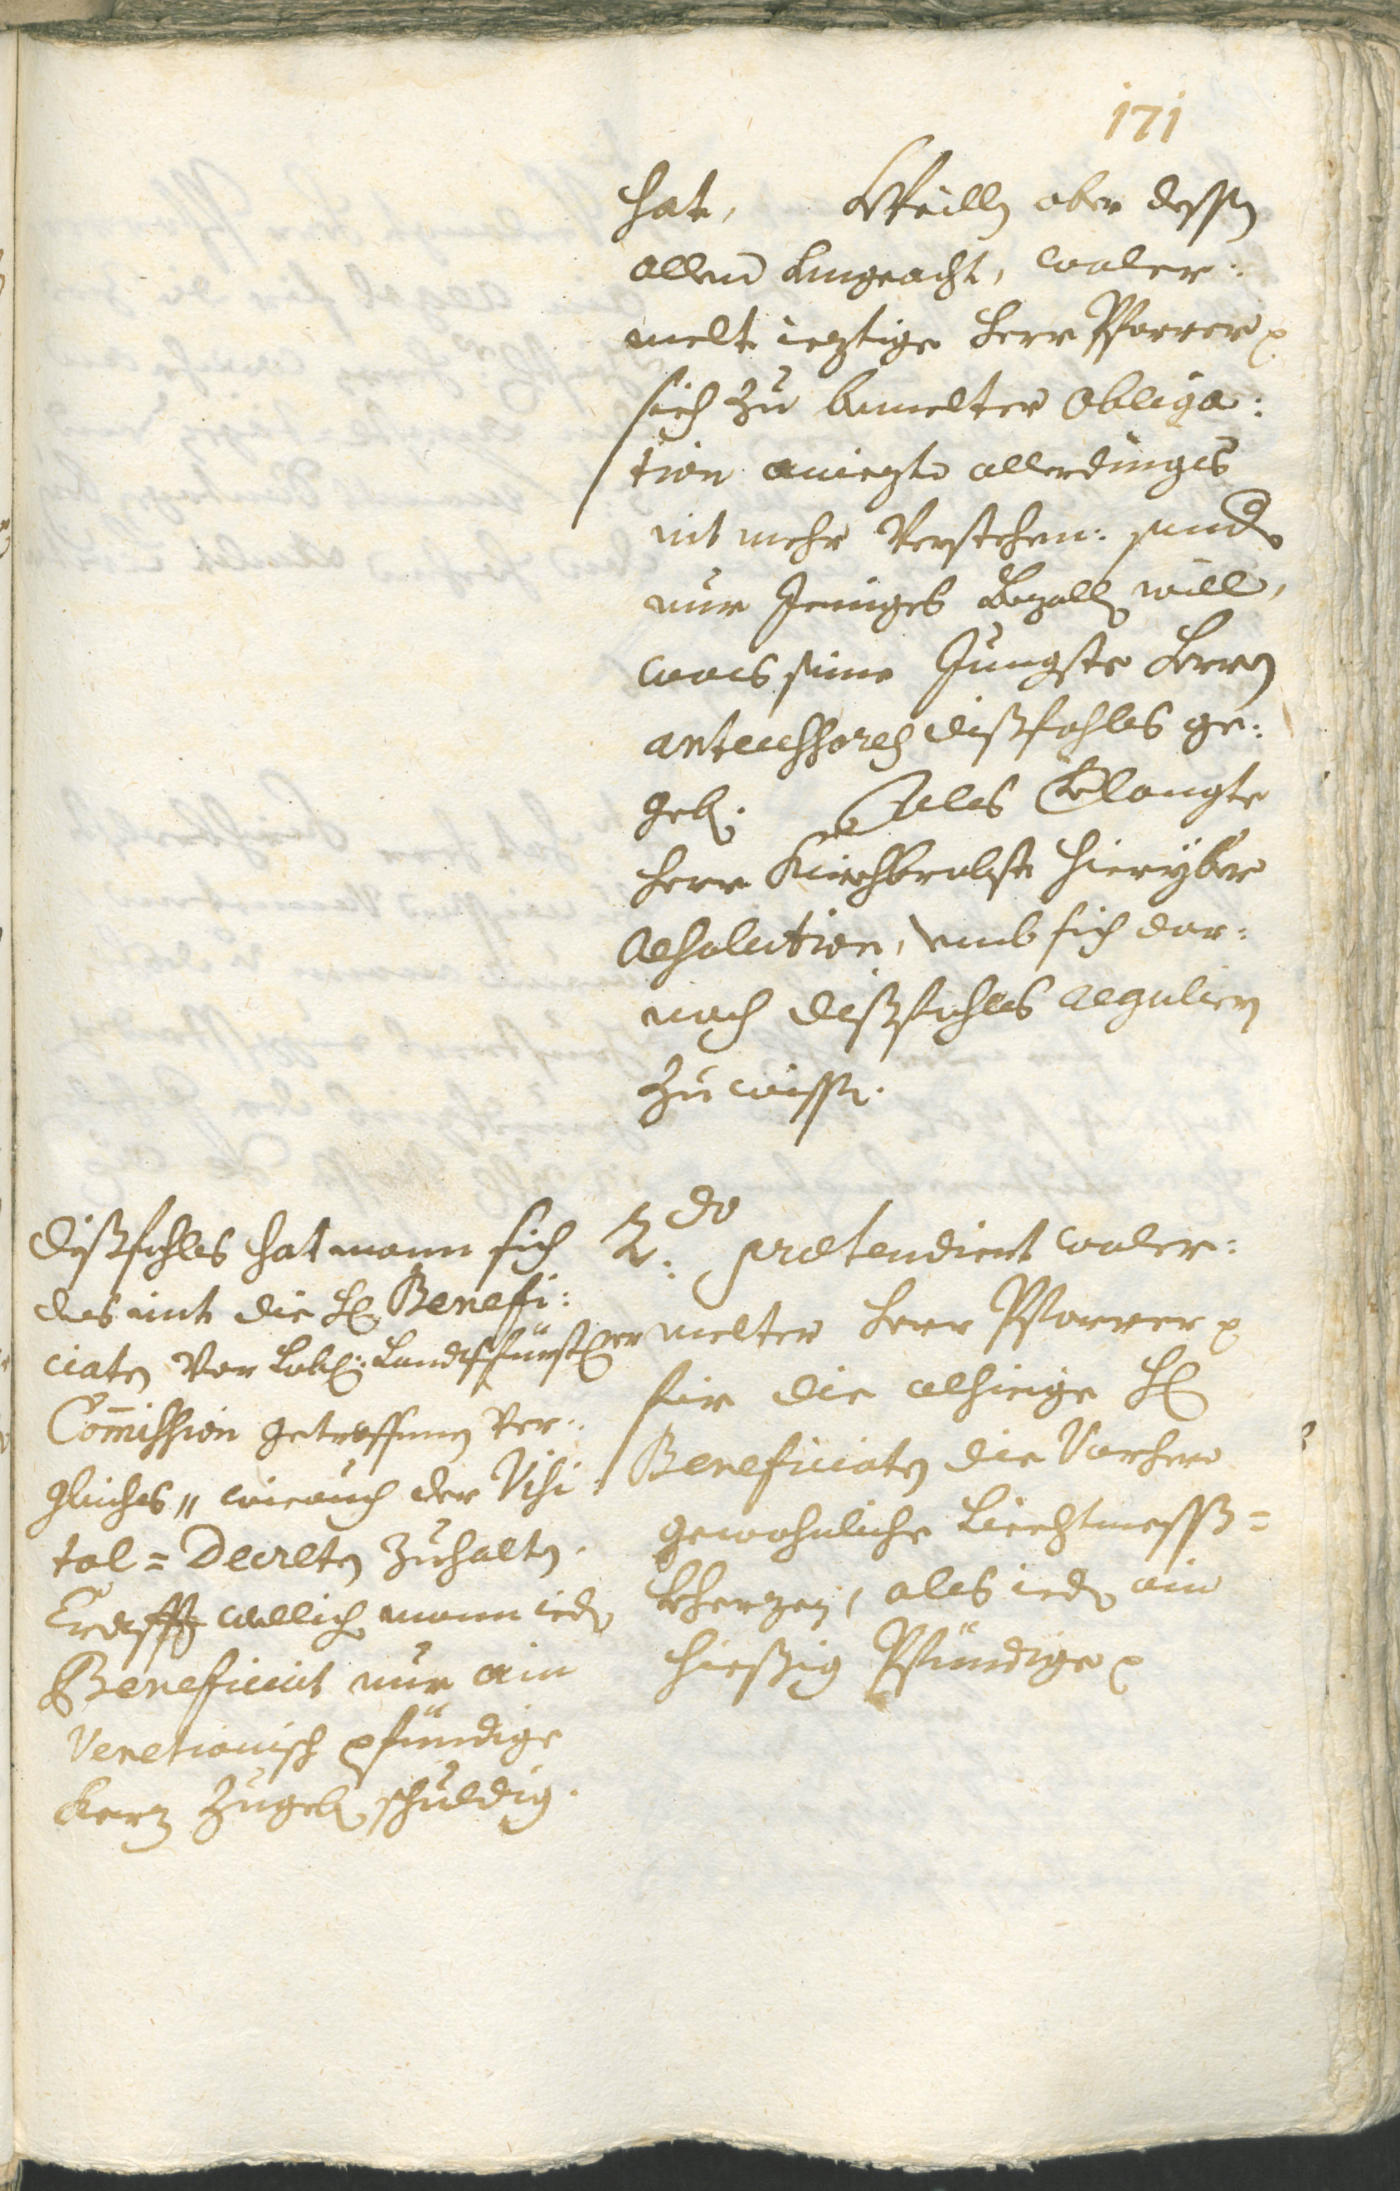 171
hat, Weillen aber dessen
allem Ungeacht, woler:
melt ieztige Herr Pfarrer
sich zu bemelter Obliga:
tion aniezto allerdings
nit mehr Verstehen: sonder
nur Jeniges Bezallen will,
was seine Jüngste Herren
Antecessoren dißfahls ge:
geben. Als Erlangte
Herr Kirchbrobst hierüber
Resolution, umb sich dar:
nach dißfahls Regulieren
zu wissen.
2.do prætendiert woler:
melter Herr Pfarrer
für die alhieige H:
Beneficiaten die Vorhero
gewohnliche Liechtmesß=
Kherzen, als ieder ain
hießig Pfündige
Dißfahls hat mann sich
des mit die H: Benefi:
ciaten Vor Lobl: Landtsfürstl:er
Commission getroffenen Ver:
gleiches, wie auch der Visi:
tal = Decreten zuhalten.
Crafft wellich mann ieder
Beneficiat nur ain
Venetianisch pfündige
Kerz zugeben schuldig.